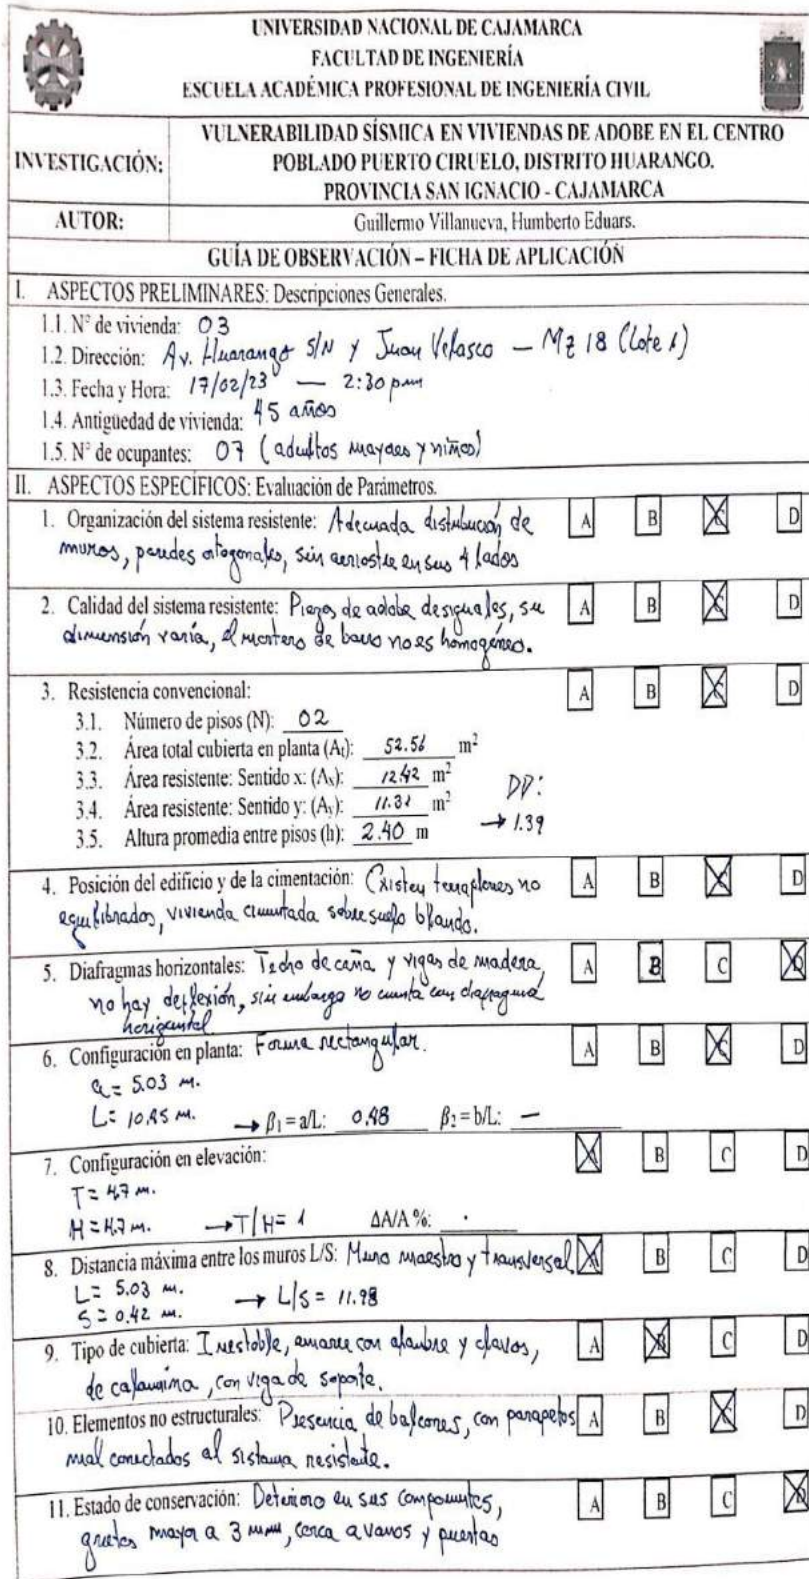 UNIVERSIDAD NACIONAL DE CAJAMARCA
FACULTAD DE INGENIERÍA
ESCUELA ACADÉMICA PROFESIONAL DE INGENIERÍA CIVIL
INVESTIGACIÓN:
VULNERABILIDAD SÍSMICA EN VIVIENDAS DE ADOBE EN EL CENTRO
POBLADO PUERTO CIRUELO, DISTRITO HUARANGO.
PROVINCIA SAN IGNACIO - CAJAMARCA
AUTOR: Guillermo Villanueva, Humberto Eduars.
GUÍA DE OBSERVACIÓN – FICHA DE APLICACIÓN
I. ASPECTOS PRELIMINARES: Descripciones Generales.
1.1. N° de vivienda: 03
1.2. Dirección: Av. Huarango S/N y Juan Velasco — Mz 18 (Lote 1)
1.3. Fecha y Hora: 17/02/23 — 2:30 pm
1.4. Antigüedad de vivienda: 45 años
1.5. N° de ocupantes: 07 (adultos mayores y niños)
II. ASPECTOS ESPECÍFICOS: Evaluación de Parámetros.
1. Organización del sistema resistente: Adecuada distribución de A B C D
muros, paredes ortogonales, sin arriostre en sus 4 lados
2. Calidad del sistema resistente: Piezas de adobe desiguales, su A B C D
dimensión varía, el mortero de barro no es homogéneo.
3. Resistencia convencional: A B C D
3.1. Número de pisos (N): 02
3.2. Área total cubierta en planta (At): 52.56 m²
3.3. Área resistente: Sentido x: (Ax): 12.42 m²
3.4. Área resistente: Sentido y: (Ay): 11.32 m²
3.5. Altura promedia entre pisos (h): 2.40 m
→ 1.39
4. Posición del edificio y de la cimentación: Existen terraplenes no A B C D
equilibrados, vivienda cimentada sobre suelo blando.
5. Diafragmas horizontales: Techo de caña y vigas de madera, A B C D
no hay deflexión, sin embargo no cuenta con diafragma
horizontal
6. Configuración en planta: Forma rectangular. A B C D
a = 5.03 m.
L = 10.45 m. → β₁ = a/L: 0.48 β₂ = b/L: —
7. Configuración en elevación: A B C D
T = 4.7 m.
H = 4.7 m. → T/H = 1 ΔA/A %:
8. Distancia máxima entre los muros L/S: Muro maestro y transversal A B C D
L = 5.03 m.
S = 0.42 m. → L/S = 11.98
9. Tipo de cubierta: Inestable, amarre con alambre y clavos, A B C D
de calamina, con viga de soporte.
10. Elementos no estructurales: Presencia de balcones, con parapetos A B C D
mal conectados al sistema resistente.
11. Estado de conservación: Deterioro en sus componentes, A B C D
grietas mayor a 3 mm, cerca a vanos y puertas